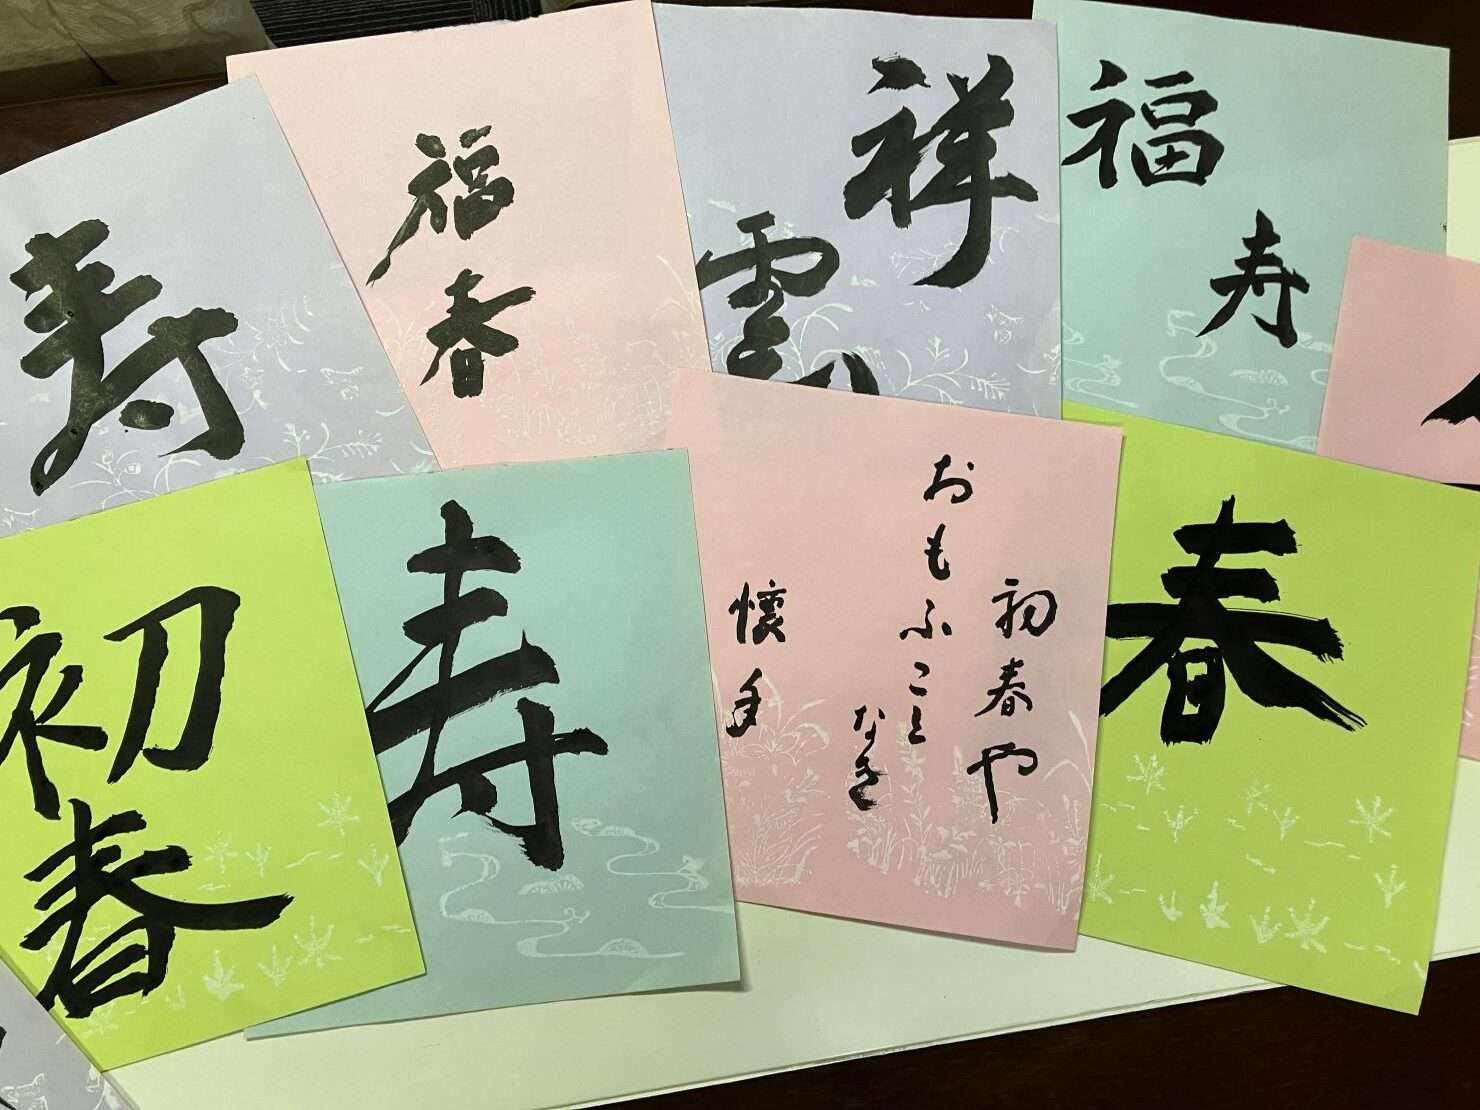 寿
福
春
祥
雲
福
寿
初
春
寿
初春や
おもふこと
なき
懐手
春